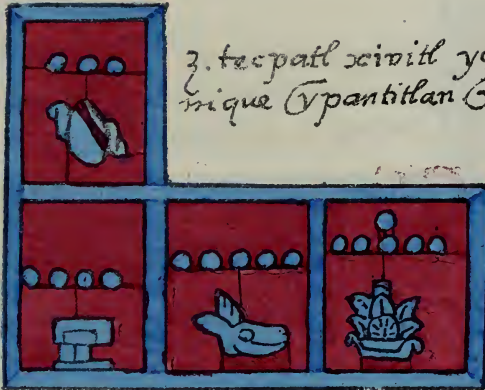 3. tecpatl xivitl
nique ypantitlan